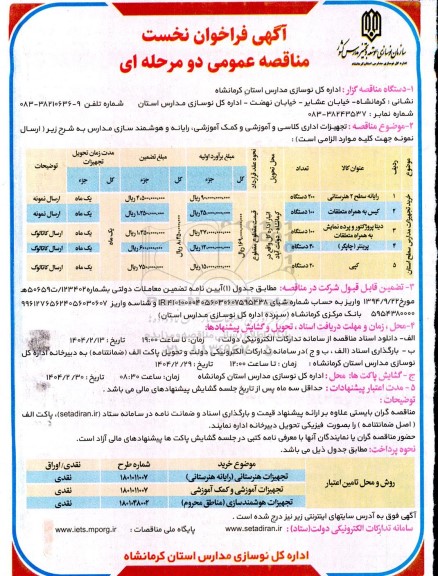 آگهی فراخوان نخست
مناقصه عمومی دو مرحله ای
اداره کل نوسازی مدارس استان کرمانشاه
۱-دستگاه مناقصه گزار : اداره کل نوسازی مدارس استان کرمانشاه
نشانی : کرمانشاه- خیابان عشایر - خیابان نهضت - اداره کل نوسازی مدارس استان شماره تلفن ۹-۳۸۲۱۰۶۳۶-۰۸۳
شماره نمابر : ۳۸۲۴۳۵۳۷-۰۸۳
۲-موضوع مناقصه : تجهیزات اداری کلاسی و آموزشی و کمک آموزشی، رایانه و هوشمند سازی مدارس به شرح زیر ( ارسال
نمونه جهت کلیه موارد الزامی است) :
موضوع ردیف عنوان کالا تعداد محل تحویل نحوه عقد قرارداد مبلغ برآورد اولیه مبلغ تضمین مدت زمان تحویل تجهیزات توضیحات
جزء کل جزء کل جزء کل
خرید تجهیزات مدارس سطح استان
۱ رایانه سطح ۲ هنرستانی ۲۰۰ دستگاه یک ماه ارسال نمونه
۲ کیس به همراه متعلقات ۱۰۰ دستگاه یک ماه ارسال نمونه
۳ دیتا پروژکتور و پرده نمایش به همراه متعلقات ۱۰۰ دستگاه یک ماه ارسال کاتالوگ
۴ پرینتر (چاپگر) ۴۰ دستگاه یک ماه ارسال کاتالوگ
۵ کپی ۲۰ دستگاه یک ماه ارسال کاتالوگ
۳- تضمین قابل قبول شرکت در مناقصه: مطابق جدول (۱)آیین نامه تضمین معاملات دولتی بشماره۱۲۳۴۰۲/ت۵۰۶۵۹ه
مورخ۱۳۹۴/۹/۲۲ واریز به حساب شماره شبای
بانک مرکزی کرمانشاه (سپرده اداره کل نوسازی مدارس استان)
۴- محل ، زمان و مهلت دریافت اسناد ، تحویل و گشایش پیشنهادها:
الف- دانلود اسناد مناقصه از سامانه تدارکات الکترونیکی دولت زمان : تا ساعت ۱۹:۰۰ تاریخ : ۱۴۰۴/۲/۱۳
ب - بارگذاری اسناد (الف ، ب و ج )در سامانه تدارکات الکترونیکی دولت و تحویل پاکت الف (ضمانتنامه) به دبیرخانه اداره کل
نوسازی مدارس استان کرمانشاه : زمان : تا ساعت ۱۲:۰۰ تاریخ : ۱۴۰۴/۲/۲۹
ج - گشایش پاکت ها: محل : اداره کل نوسازی مدارس استان کرمانشاه زمان: ساعت ۰۸:۳۰ تاریخ : ۱۴۰۴/۲/۳۰
۵- مدت اعتبار پیشنهادات : حداقل سه ماه پس از تاریخ جلسه گشایش پیشنهادهای مالی می باشد .
توضیحات:
مناقصه گران بایستی علاوه بر ارائه پیشنهاد قیمت و بارگذاری اسناد و ضمانت نامه در سامانه ستاد (setadiran.ir)، پاکت الف
( اصل ضمانتنامه ) را بصورت فیزیکی تحویل دبیرخانه اداره نمایند.
حضور مناقصه گران یا نمایندگان آنها با معرفی نامه کتبی در جلسه گشایش پاکت ها پیشنهادهای مالی آزاد است.
نحوه پرداخت: مطابق جدول ذیل می باشد.
روش و محل تامین اعتبار موضوع خرید شماره طرح نقدی/ اوراق
تجهیزات هنرستانی (رایانه هنرستانی) ۱۸۰۱۰۱۱۰۰۷ نقدی
تجهیزات آموزشی و کمک آموزشی ۱۸۰۱۰۱۱۰۰۷ نقدی
تجهیزات هوشمندسازی (مناطق محروم) ۱۸۰۱۰۲۸۰۰۲ نقدی
آگهی فوق به آدرس سایتهای اینترنتی زیر نیز درج شده است .
سامانه تدارکات الکترونیکی دولت(ستاد) : www.setadiran.ir پایگاه ملی مناقصات : www.iets.mporg.ir
اداره کل نوسازی مدارس استان کرمانشاه